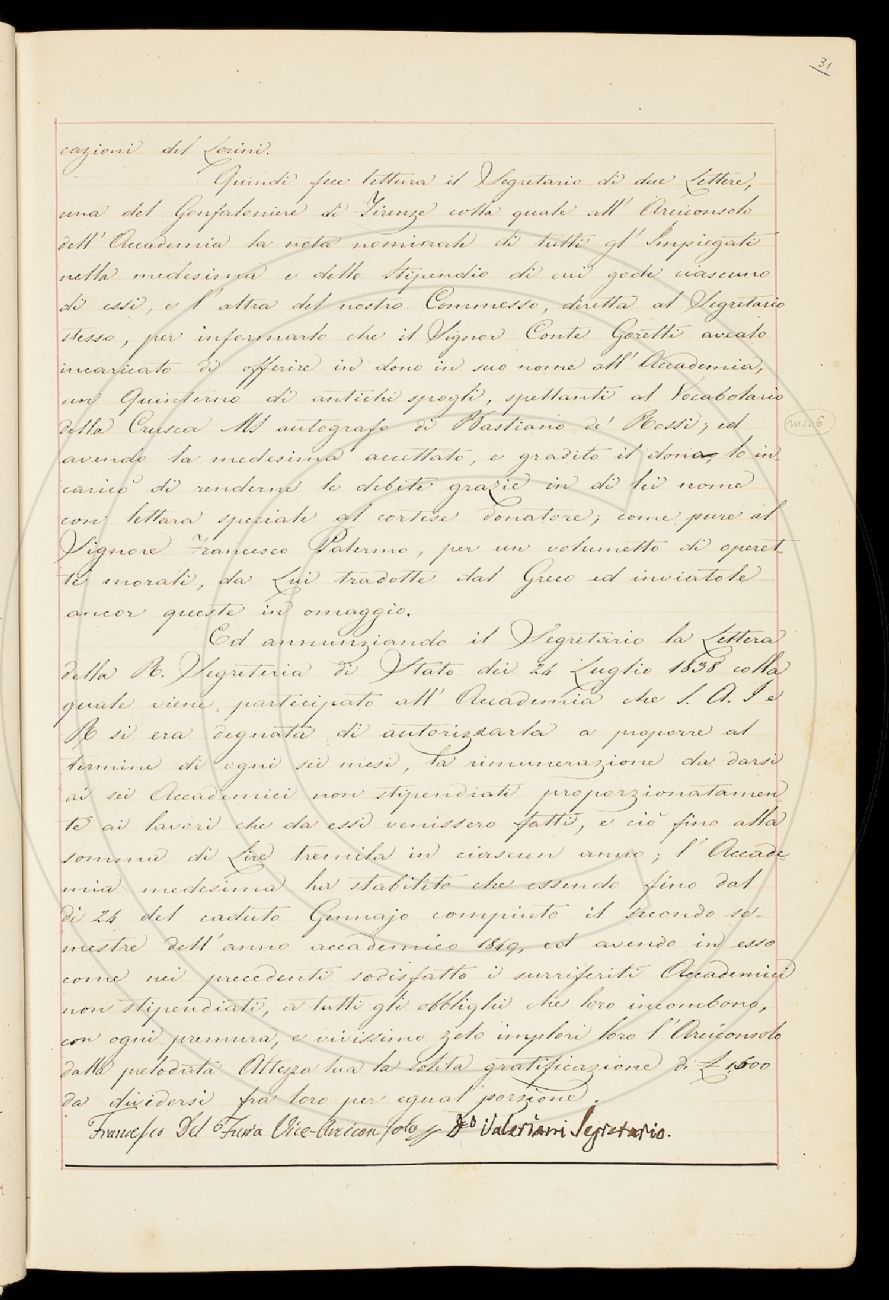 31
cazioni del Lorini.
Quindi fece lettura il Segretario di due Lettere,
una del Gonfaloniere di Firenze colla quale all' Arciconsolo
dell' Accademia la nota nominale di tutti gl' Impiegati
nella medesima e dello stipendio di cui gode ciascuno
di essi, e l' altra del nostro Commesso, diretta al Segretario
stesso, per informarlo che il Signor Conte Goretti avealo
incaricato di offerire in dono in suo nome all' Accademia,
un Quinterno di antichi spogli, spettanti al Vocabolario
della Crusca MS autografo di Bastiano de' Rossi; ed
avendo la medesima accettato, e gradito il dono, lo in
caricò di renderne le debite grazie in di lei nome
con lettara speciale al cortese donatore; come pure al
Signore Francesco Palermo, per un volumetto di operet-
te morali, da Lui tradotte dal Greco ed inviatole
ancor queste in omaggio.
Ed annunziando il Segretario la Lettera
della R. Segreteria di Stato dei 24 Luglio 1838 colla
quale viene participato all' Accademia che S. A. I e
R si era degnata di autorizzarla a proporre al
termine di ogni sei mesi, la rimunerazione da darsi
ai sei Accademici non stipendiati proporzionatamen
te ai lavori che da essi venissero fatti, e ciò fino alla
somma di Lire tremila in ciascun anno; l' Accade-
mia medesima ha stabilito che essendo fino dal
dì 24 del caduto Gennajo compiuto il secondo se-
mestre dell' anno accademico 1849, ed avendo in esso
come nei precedenti sodisfatto i surriferiti Accademici
non stipendiati, a tutti gli obblighi che loro incombono,
con ogni premura, e vivissimo zelo implori loro l' Arciconsolo
dalla prelodata Altezza sua la solita gratificazione di £ 1,500
da dividersi fra loro per egual porzione.
Francesco Del Furia Vice-Arciconsolo Valeriani Segretario.